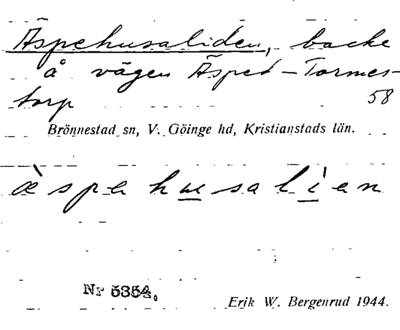 Äspehusaliden, backe
å vägen Äspet-Tormes-
torp
58
Brönnestad sn, V. Göinge hd, Kristianstads län.
æ̀spehu̲salì̲en
Nr 5354.
Erik W. Bergenrud 1944.